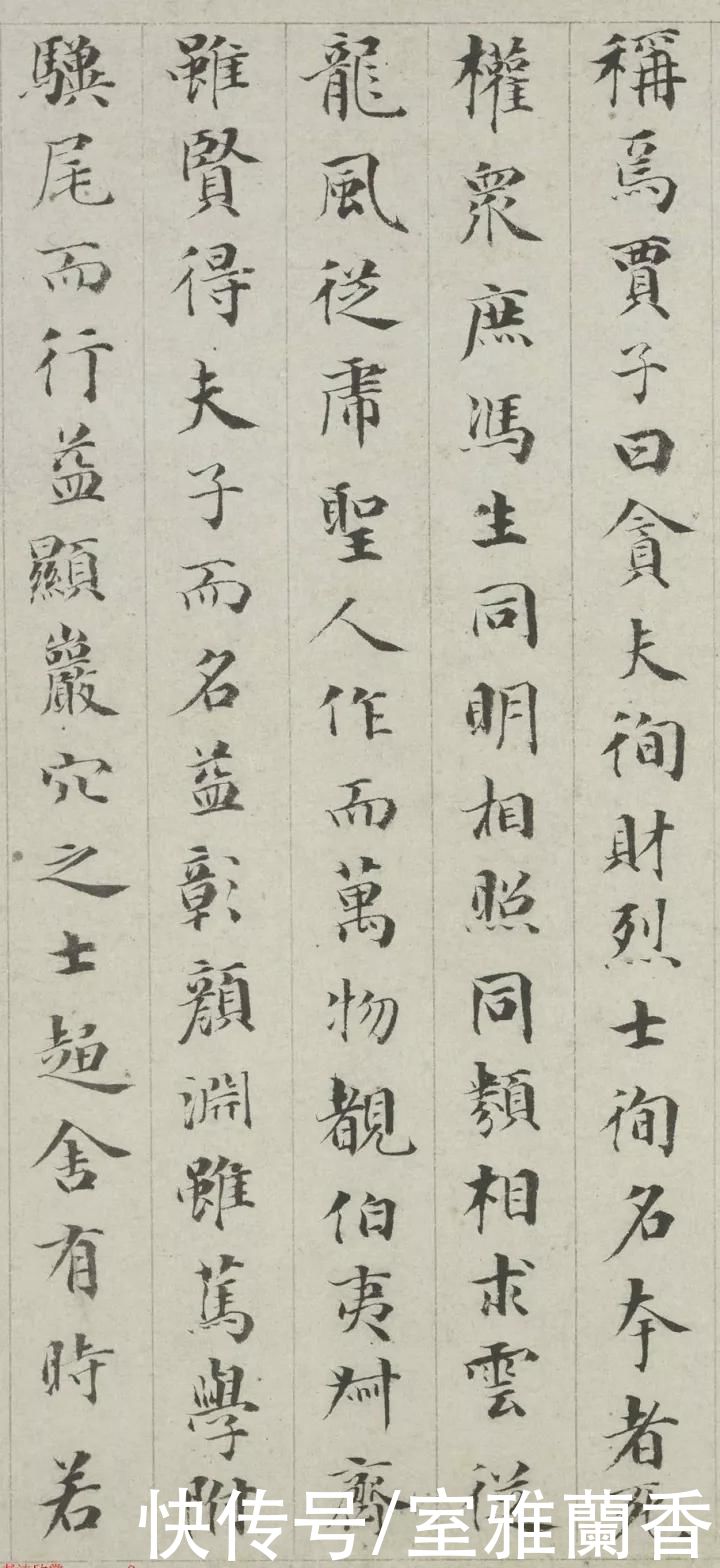 稱焉賈子曰貪夫徇財烈士徇名夸者死
權衆庶馮生同明相照同類相求雲從
龍風從虎聖人作而萬物覩伯夷叔齊
雖賢得夫子而名益彰顔淵雖篤學附
驥尾而行益顯巖穴之士趨舍有時若
快传号/室雅蘭香